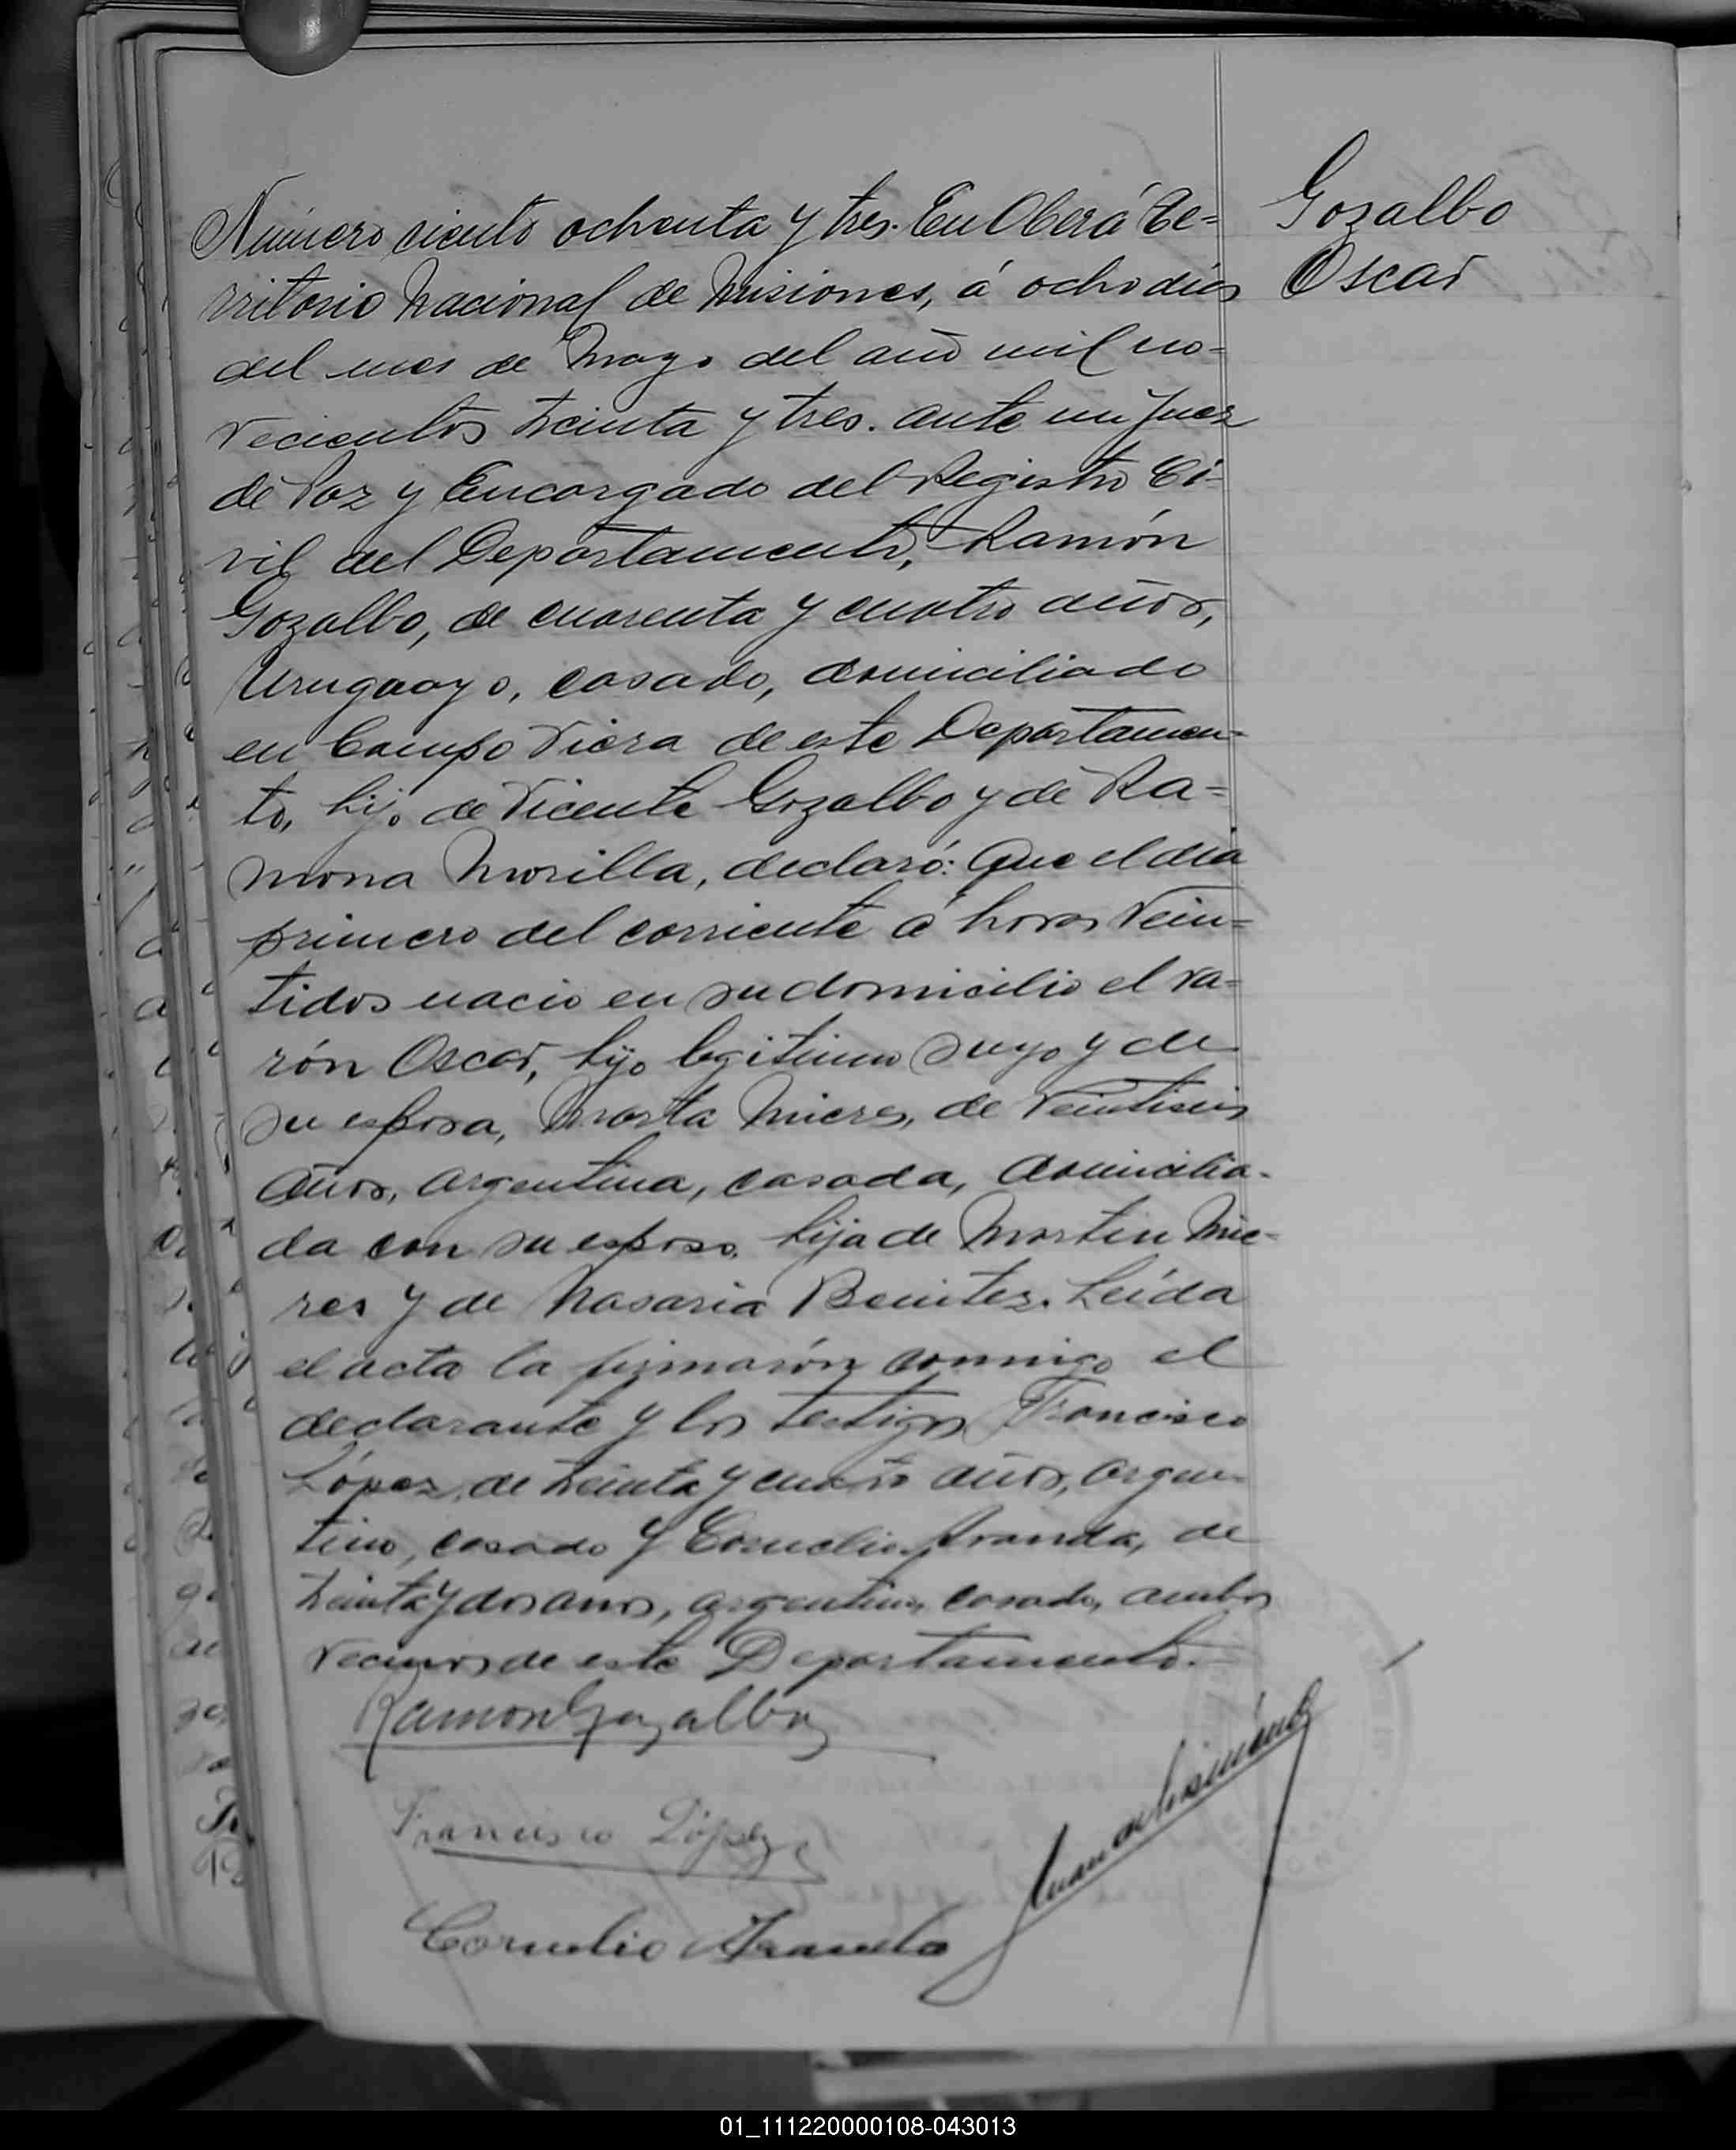 Número ciento ochenta y tres. En Oberá Te=
rritorio Nacional de Misiones, á ocho dias
del mes de Mayo del año mil no=
vecientos treinta y tres. ante mi Juez
de Paz y Encargado del Registro Ci=
vil del Departamento, Ramón
Gozalbo, de cuarenta y cuatro años,
Uruguayo, casado, domiciliado
en Campo Viera de este Departamen=
to, hijo de Vicente Gozalbo y de Ra=
mona Morilla, declaró: Que el dia
primero del corriente á horas vein=
tidos nacio en su domicilio el va=
rón Oscar, hijo legitimo suyo y de
su esposa, Marta Mieres, de veintiseis
años, argentina, casada, domicilia-
da con su esposo, hija de Martin Mie-
res y de Nasaria Benitez. Leída
el acta la firmarón conmigo el
declarante y los testigos Francisco
López, de treinta y cuatro años, argen-
tino, casado y Cornelio Aranda, de
treinta y dos anos, argentino, casado, ambos
vecinos de este Departamento.
Gozalbo
Oscar
Ramon Gozalbo
Francisco López
Cornelio Aranda
01_111220000108-043013